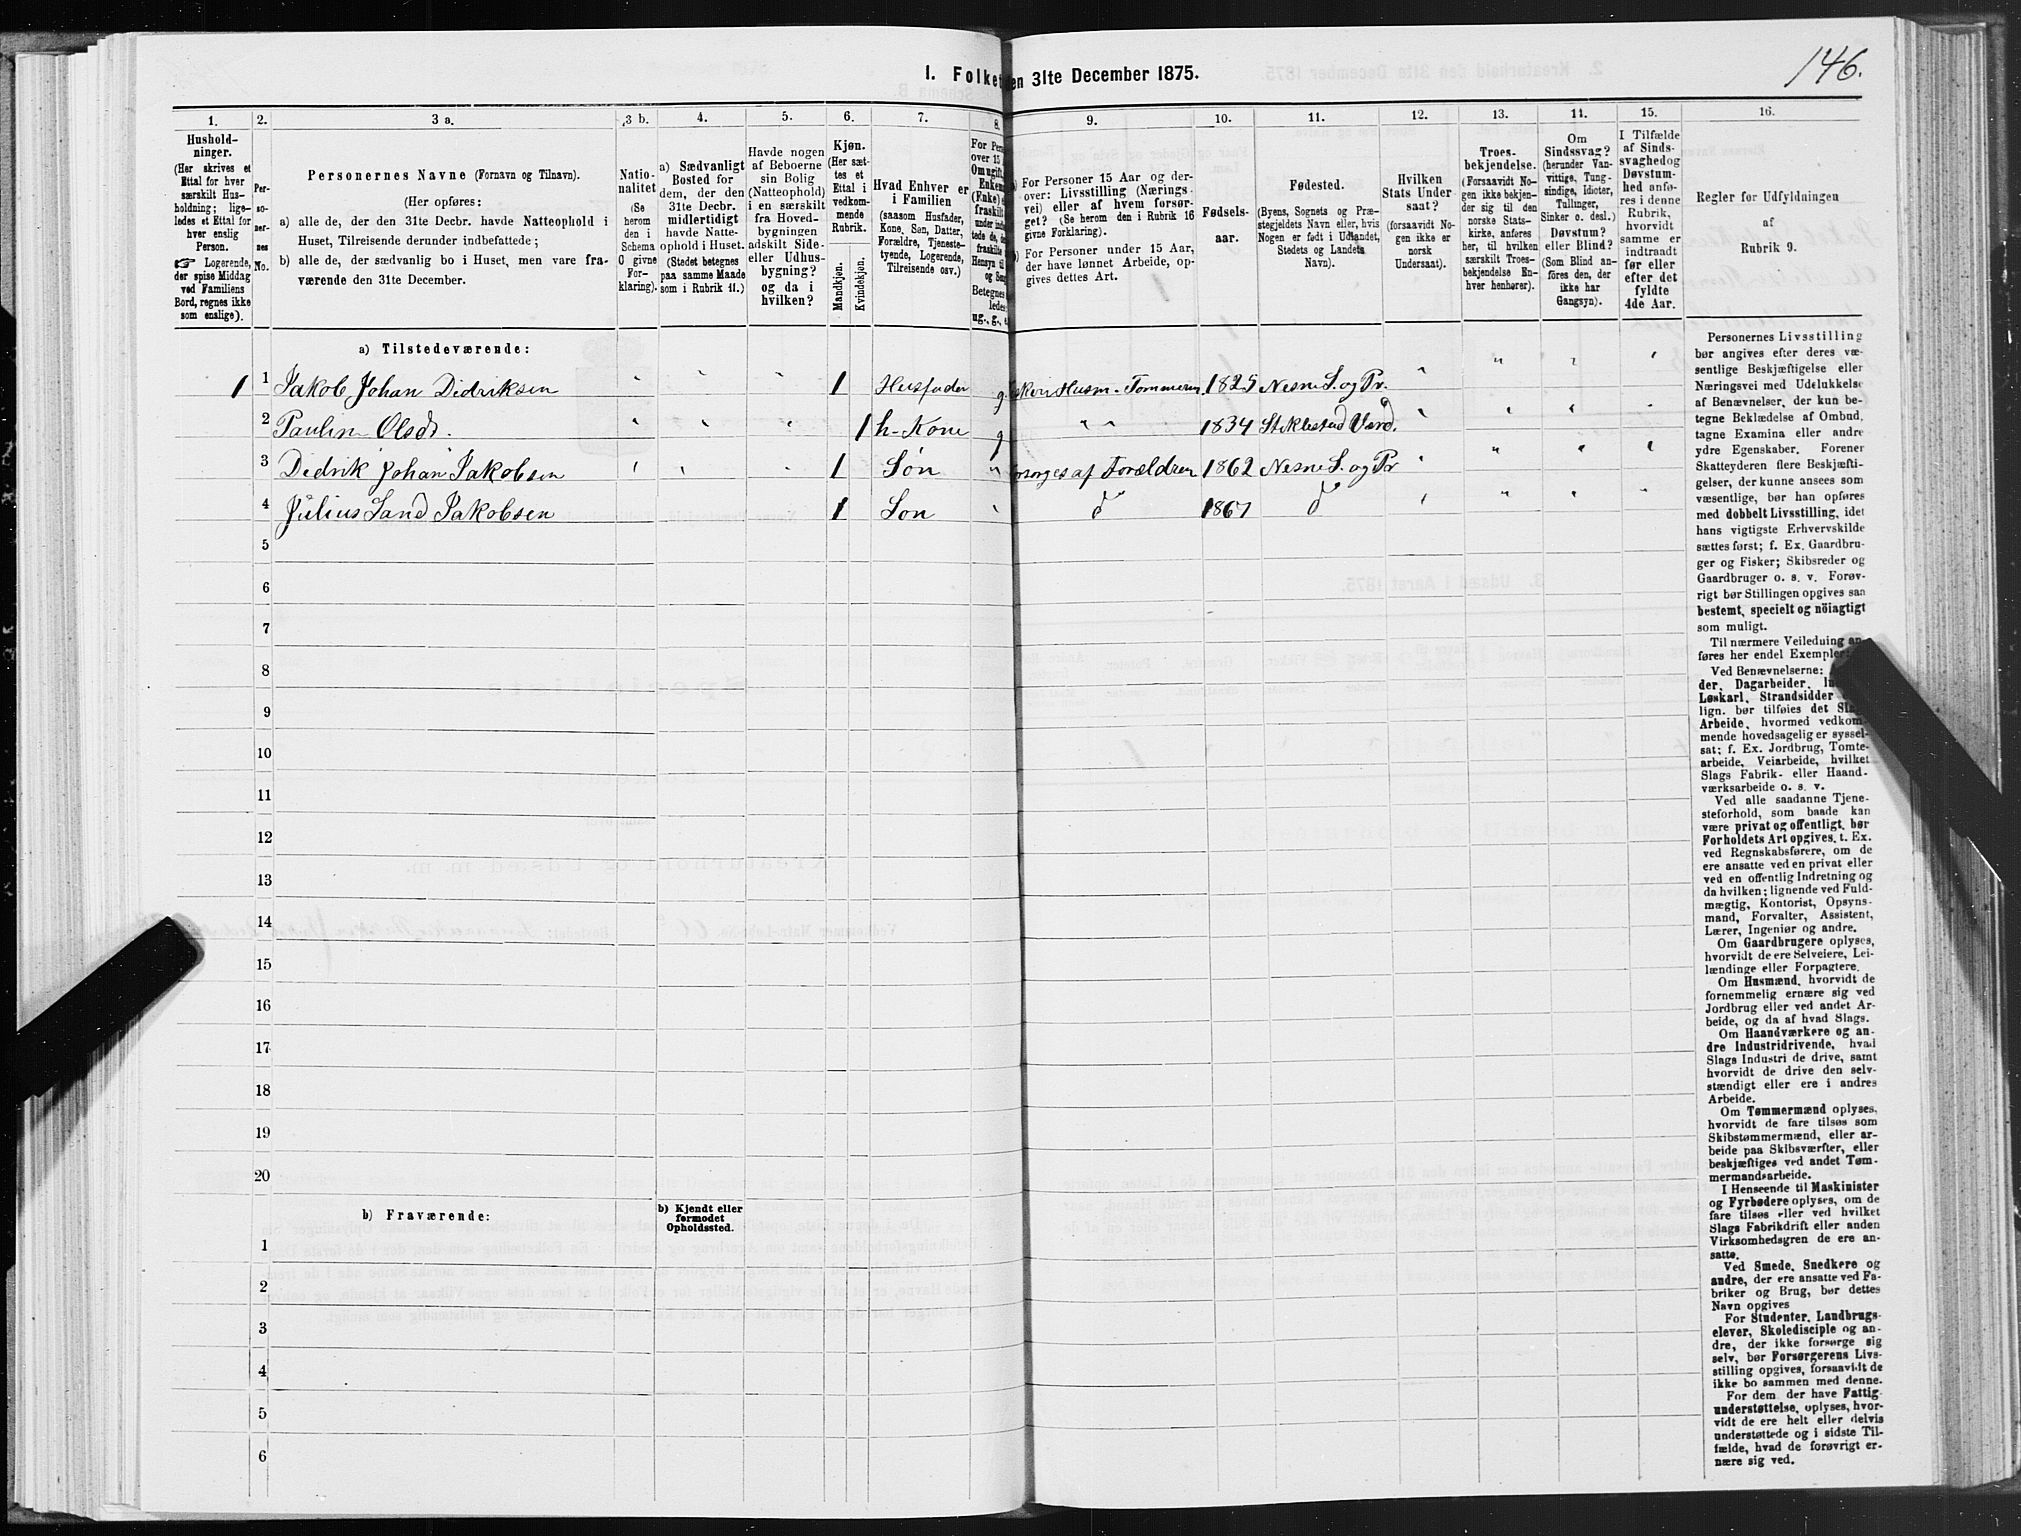 146.
I. Folket
en 31te December 1875.
1.
Hushold-
ninger.
(Her skrives et
Ettal for hver
særskilt Hus-
holdning; lige-
ledes et Ettal for
hver enslig
Person.
☞ Logerende,
der spise Middag
ved Familiens
Bord, regnes ikke
som enslige).
2.
Per-
so-
ner-
nes
No.
3 a.
Personernes Navne (Fornavn og Tilnavn).
(Her opføres:
a) alle de, der den 31te Decbr. havde Natteophold i
Huset, Tilreisende derunder indbefattede;
b) alle de, der sædvanlig bo i Huset, men vare fra-
værende den 31te December.
3 b.
Natio-
nalitet
(Se
herom
den i
Schema
O givne
For-
klaring).
4.
a) Sædvanligt
Bosted for
dem, der den
31te Decbr.
midlertidigt
havde Natte-
ophold i Huset.
(Stedet betegnes
paa samme Maade
som i Rubrik 11.)
5.
Havde nogen
af Beboerne
sin Bolig
(Natteophold)
i en særskilt
fra Hoved-
bygningen
adskilt Side-
eller Udhus-
bygning?
og da i
hvilken?
6.
Kjøn.
(Her sæt-
tes et
Ettal i
vedkom-
mende
Rubrik.
Mandkjøn.
Kvindekjøn.
7.
Hvad Enhver er
i Familien
(saasom Husfader,
Kone, Søn, Datter,
Forældre, Tjeneste-
tyende, Logerende,
Tilreisende osv.)
8.
For Pers
over 15
Omugift,
Enkem
(Enke) e
fraskilt
Betegnes
ledes:
ug., g., e
9.
a) For Personer 15 Aar og der-
over: Livsstilling (Nærings-
vei) eller af hvem forsør-
get? (Se herom den i Rubrik 16
givne Forklaring).
b) For Personer under 15 Aar,
der have lønnet Arbeide, op-
gives dettes Art.
10.
Fødsels-
aar.
11.
Fødested.
(Byens, Sognets og Præ-
stegjeldets Navn eller, hvis
Nogen er født i Udlandet,
Stedets og Landets
Navn).
12.
Hvilken
Stats Under
saat?
(forsaavidt No-
gen ikke er
norsk
Undersaat).
13.
Troes-
bekjendelse.
(Forsaavidt No-
gen ikke bekjen-
der sig til den
norske Stats-
kirke, anføres
her, til hvilken
særskilt Troes-
bekjendelse En-
hver henhører).
14.
Om
Sindssvag?
(herunder Van-
vittige, Tung-
sindige, Idioter,
Tullinger,
Sinker o. desl.)
Døvstum?
eller Blind?
(Som Blind an-
føres den, der
ikke har
Gangsyn).
15.
I Tilfælde
af Sinds-
svaghedog
Døvstum-
hed anfø-
res i denne
Rubrik,
hvorvidt
samme er
indtraadt
før eller
efter det
fyldte
4de Aar.
16.
Regler for Udfyldningen
af
Rubrik 9.
a) Tilstedeværende:
1 1 Jakob Johan Didriksen 1 Husfader g. Husm. Tømmerm 1825 Nesne S. og Pr.
2 Paulin Olsdr. 1 h-Kone g " " 1834 Stiklestad Værd.
3 Didrik Johan Jakobsen 1 Søn " forsorges af Forældren 1862 Nesne S. og Pr
4 Julius Sand Jakobsen 1 Søn " do 1867 do
5
6
7
8
9
10
11
12
13
14
15
16
17
18
19
20
b) Fraværende:
b) Kjendt eller
formodet
Opholdssted.
1
2
3
4
5
6
Personernes Livsstilling
bør angives efter deres væ-
sentlige Beskjæftigelse eller
Næringsvei med Udelukkelse
af Benævnelser, der kun be-
tegne Beklædelse af Ombud,
tagne Examina eller andre
ydre Egenskaber. Forener
Skatteyderen flere Beskjæfti-
gelser, der kunne ansees som
væsentlige, bør han opføres
med dobbelt Livsstilling, idet
hans vigtigste Erhvervskilde
sættes først; f. Ex. Gaardbru-
ger og Fisker; Skibsreder og
Gaardbruger o. s. v. Forøv-
rigt bør Stillingen opgives saa
bestemt, specielt og nöiagtigt
som muligt.
Til nærmere Veiledning an-
føres her endel Exempler:
Ved Benævnelserne:
der, Dagarbeider,
Løskarl, Strandsidder
lign. bør tilføies det Slags
Arbeide, hvormed vedkom-
mende hovedsagelig er syssel-
sat; f. Ex. Jordbrug, Tomte-
arbeide, Veiarbeide, hvilket
Slags Fabrik- eller Haand-
værksarbeide o. s. v.
Ved alle saadanne Tjene-
steforhold, som baade kan
være privat og offentligt, bør
Forholdets Art opgives, t. Ex.
ved Regnskabsførere, om de
ere ansatte ved en privat eller
ved en offentlig Indretning og
da hvilken; lignende ved Fuld-
mægtig, Kontorist, Opsyns-
mand, Forvalter, Assistent,
Lærer, Ingeniør og andre.
Om Gaardbrugere oplyses,
hvorvidt de ere Selveiere, Lei-
lændinge eller Forpagtere.
Om Husmænd, hvorvidt de
fornemmelig ernære sig ved
Jordbrug eller ved andet Ar-
beide, og da af hvad Slags.
Om Haandværkere og an-
dre Industridrivende, hvad
Slags Industri de drive, samt
hvorvidt de drive den selv-
stændigt eller ere i andres
Arbeide.
Om Tømmermænd oplyses,
hvorvidt de fare tilsøs som
Skibstømmermænd, eller ar-
beide paa Skibsværfter, eller
beskjæftiges ved andet Tøm-
mermandsarbeide.
I Henseende til Maskinister
og Fyrbødere oplyses, om de
fare tilsøs eller ved hvilket
Slags Fabrikdrift eller anden
Virksomhedsgren de ere an-
satte.
Ved Smede, Snedkere og
andre, der ere ansatte ved Fa-
briker og Brug, bør dettes
Navn opgives
For Studenter, Landbrugs-
elever, Skoledisciple og an-
dre, der ikke forsørge sig
selv, bør Forsørgerens Livs-
stilling opgives, forsaavidt de
ikke bo sammen med denne.
For dem der have Fattig-
understøttelse, oplyses, hvor-
vidt de ere helt eller delvis
understøttede og i sidste Til-
fælde, hvad de forøvrigt er-
nære sig ved.